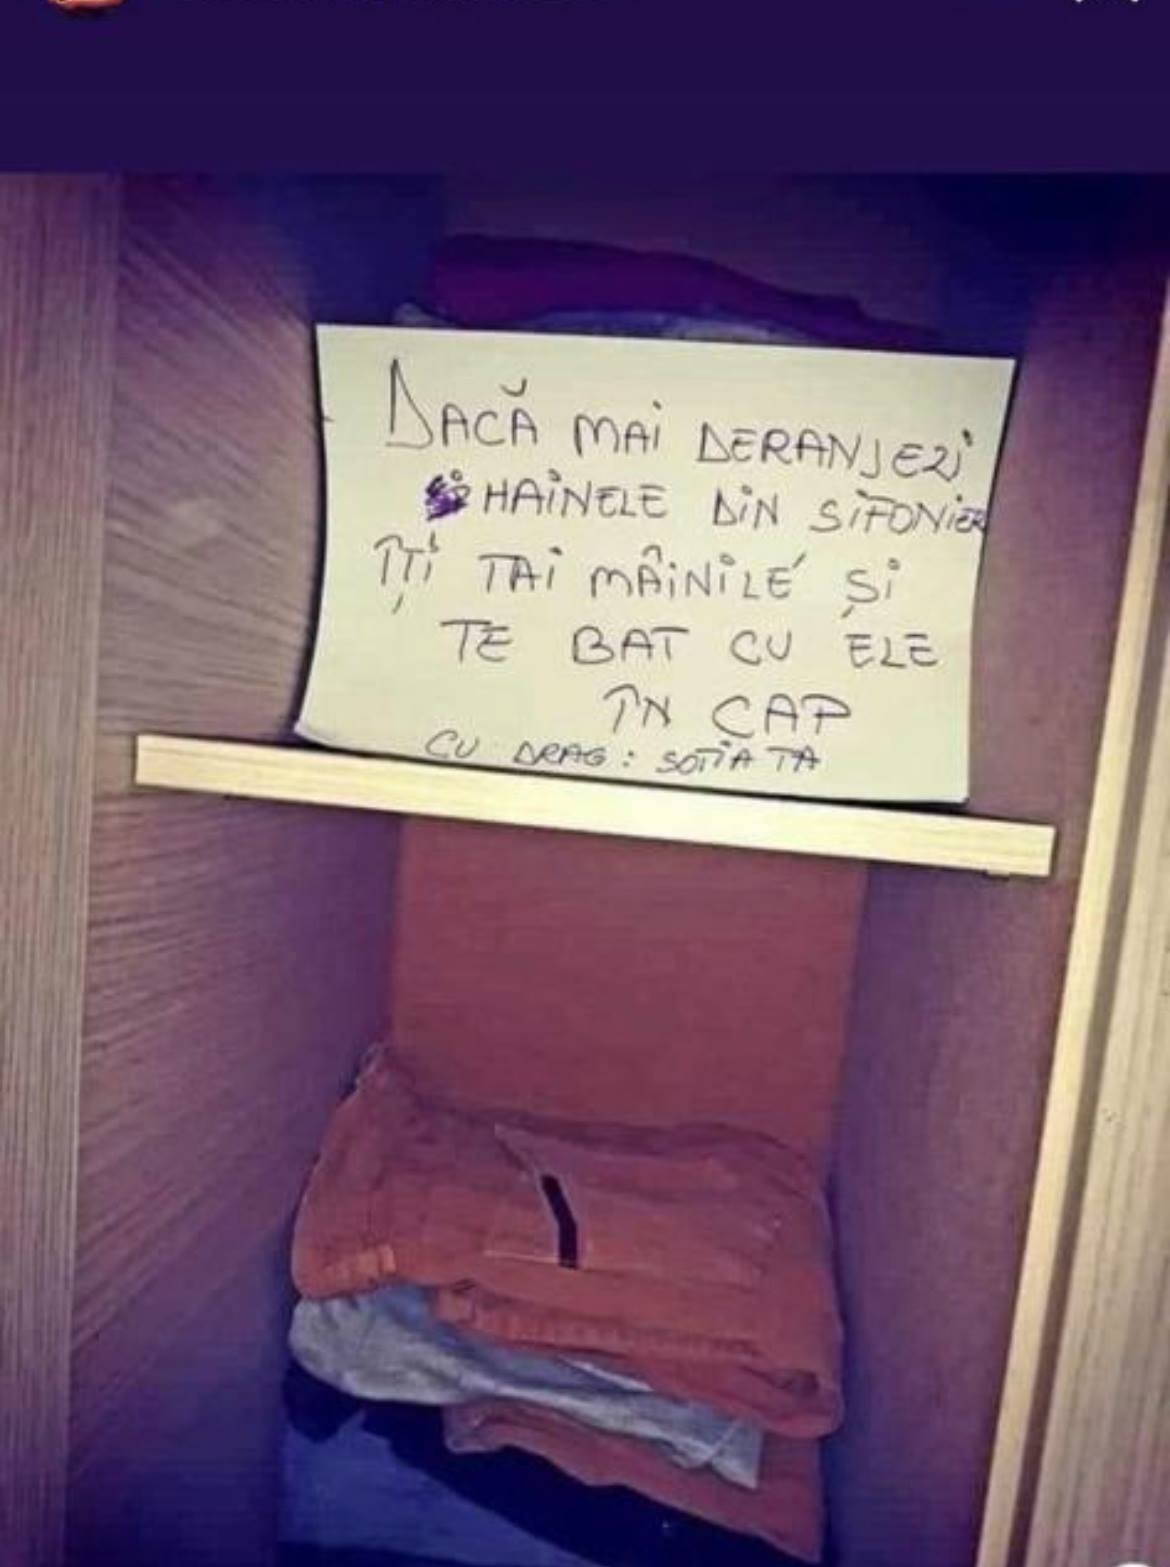 DACĂ MAI DERANJEZI
HAINELE DIN SIFONIER
ÎȚI TAI MÂINILE ȘI
TE BAT CU ELE
ÎN CAP
CU DRAG: SOȚIA TA